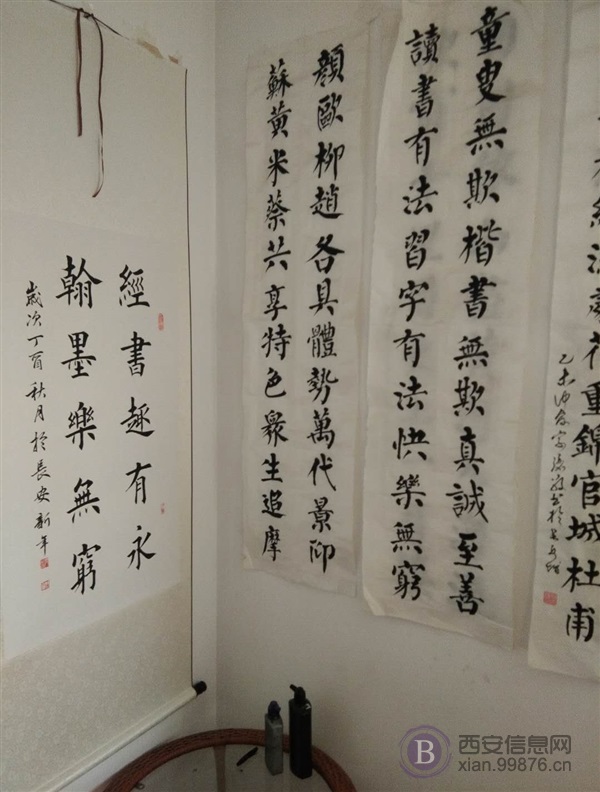 花重錦官城杜甫
乙未
童叟無欺楷書無欺真誠至善
讀書有法習字有法快樂無窮
顏歐柳趙各具體勢萬代景仰
蘇黃米蔡共享特色眾生追摩
經書趣有永
翰墨樂無窮
歲次丁酉秋月於長安新年
B 西安信息网
xian.99876.cn